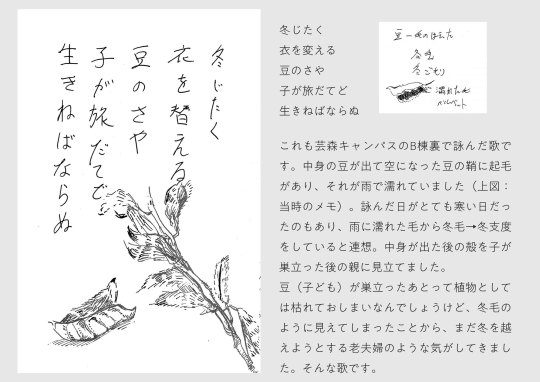 冬じたく
衣を替える
豆のさや
子が旅だてど
生きねばならぬ
冬じたく
衣を変える
豆のさや
子が旅だてど
生きねばならぬ
冬毛
冬ごもり
濡れた毛
これも芸森キャンパスのB棟裏で詠んだ歌で
す。中身の豆が出て空になった豆の鞘に起毛
があり、それが雨で濡れていました（上図：
当時のメモ）。詠んだ日がとても寒い日だっ
たのもあり、雨に濡れた毛から冬毛→冬支度
をしていると連想。中身が出た後の殻を子が
巣立った後の親に見立てました。
豆（子ども）が巣立ったあとって植物として
は枯れておしまいなんでしょうけど、冬毛の
ように見えてしまったことから、まだ冬を越
えようとする老夫婦のような気がしてきまし
た。そんな歌です。